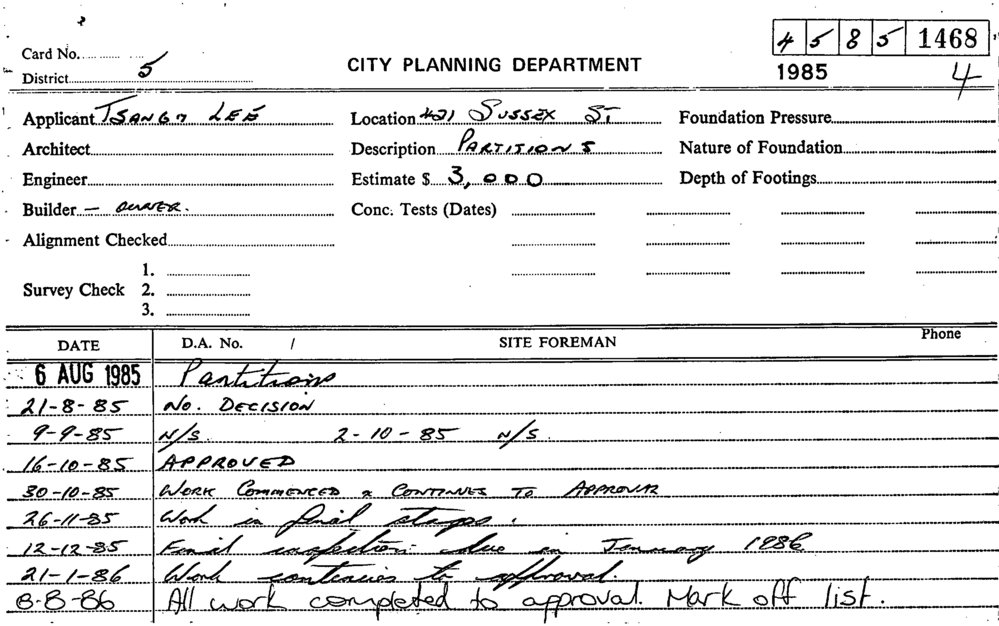 4 5 8 5 1468
Card No.
District 5 CITY PLANNING DEPARTMENT 1985 4
Applicant TSANG LEE Location 421 SUSSEX ST Foundation Pressure
Architect Description PARTITIONS Nature of Foundation
Engineer Estimate $ 3,000 Depth of Footings
Builder — OWNER. Conc. Tests (Dates)
Alignment Checked
1.
Survey Check 2.
3.
DATE D.A. No. / SITE FOREMAN Phone
6 AUG 1985 Partitions
21-8-85 No. DECISION
9-9-85 N/S. 2-10-85 N/S.
16-10-85 APPROVED
30-10-85 WORK COMMENCED & CONTINUES TO APPROVAL
26-11-85 Work in final stages.
12-12-85 Final inspection due in January 1986
21-1-86 Work continues to approval.
8-8-86 All work completed to approval. Mark off list.